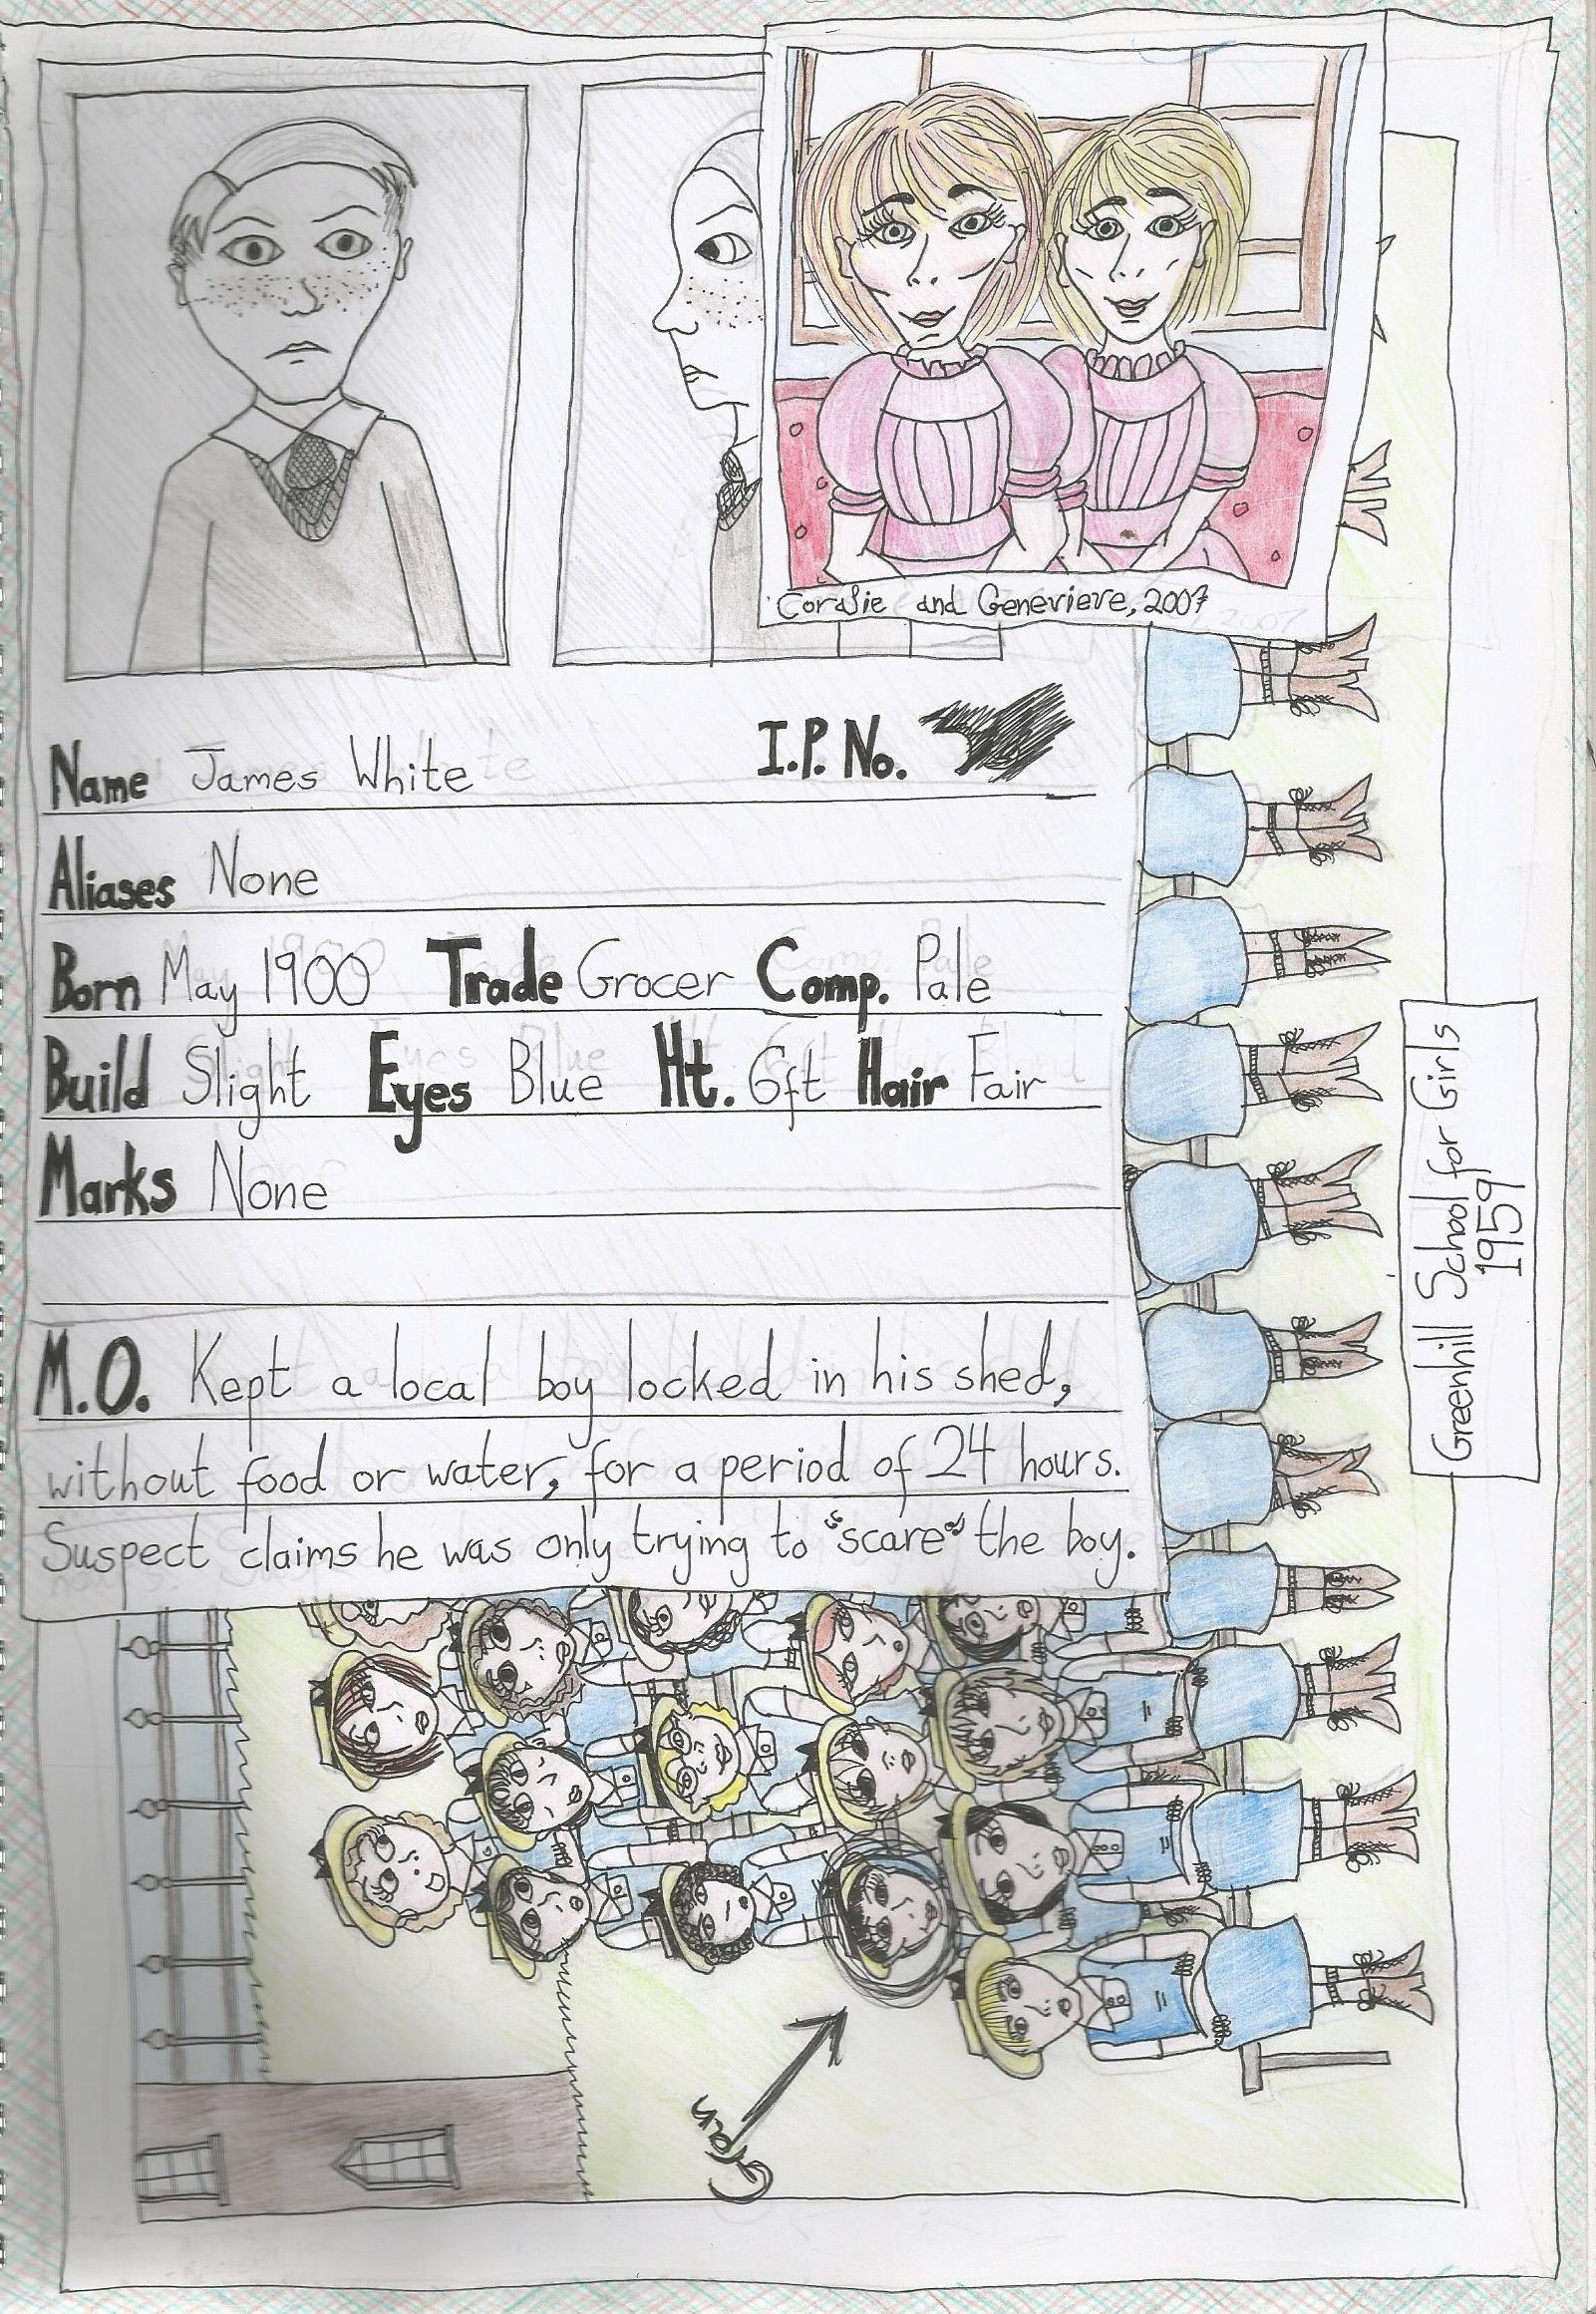 Coralie and Genevieve, 2007
Name James White I.P. No.
Aliases None
Born May 1900 Trade Grocer Comp. Pale
Build Slight Eyes Blue Ht. 6ft Hair Fair
Marks None
M.O. Kept a local boy locked in his shed,
without food or water, for a period of 24 hours.
Suspect claims he was only trying to "scare" the boy.
Greenhill School for Girls
1959
Gran